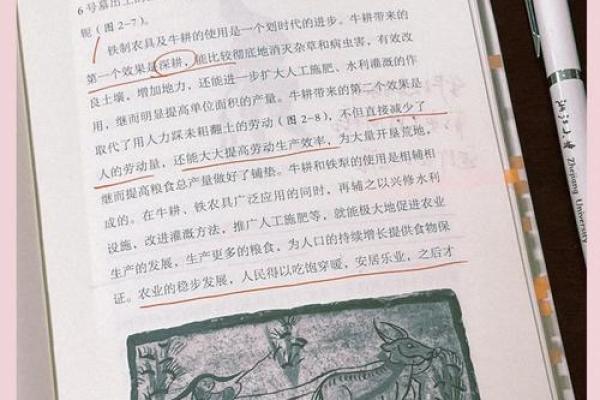 6号墓出土的
昵(图2-7)。
铁制农具及牛耕的使用是一个划时代的进步。牛耕带来的
第一个效果是深耕,能比较彻底地消灭杂草和病虫害,有效改
良土壤,增加地力,还能进一步扩大人工施肥、水利灌溉的作
用,继而明显提高单位面积的产量。牛耕带来的第二个效果是
取代了用人力踩耒耜翻土的劳动(图2-8),不但直接减少了
人的劳动量,还能大大提高劳动生产效率,为大量开垦荒地,
继而提高粮食总产量做好了铺垫。牛耕和铁犁的使用是相辅相
成的。在牛耕、铁农具广泛应用的同时,再辅之以兴修水利
设施,改进灌溉方法,推广人工施肥等,就能极大地促进农业
生产的发展,生产更多的粮食,为人口的持续增长提供食物保
证。农业的稳步发展,人民得以吃饱穿暖,安居乐业,之后才
浙江大学 Zhejiang University